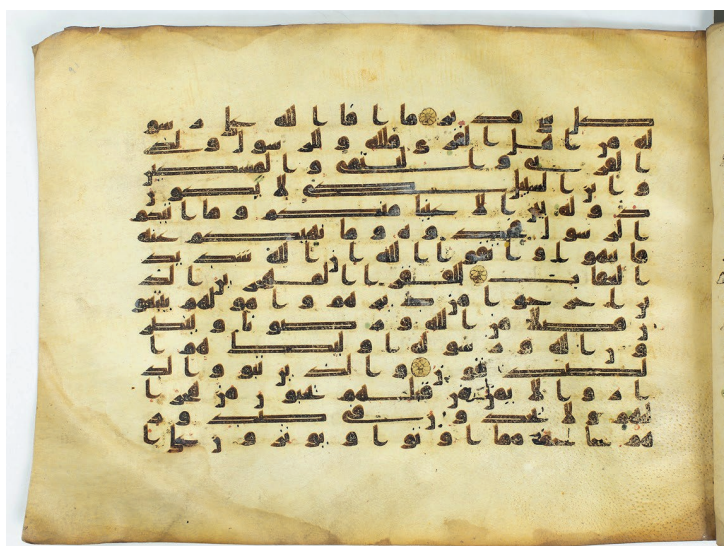 كل شى قدير ما افا الله على رسو
له من اهل القرى فلله وللرسول ولذ
ى القربى واليتمى والمسكين
وابن السبيل كى لا يكون
دولة بين الاغنيا منكم وما اتيكم
الرسول فخذوه وما نهيكم عنه
فانتهوا واتقوا الله ان الله شديد
العقاب للفقرا المهجرين الذ
ين اخرجوا من ديرهم وامولهم يبتغو
ن فضلا من الله ورضونا وينصر
ون الله ورسوله اوليك هم ا
لصدقون والذين تبوو الد
ار والايمن من قبلهم يحبون من هجر ا
ليهم ولا يجدون فى صدور
هم حاجة مما اوتوا ويوثرون على ا